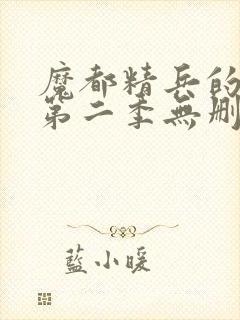 魔都精兵的
第二季無刪
藍小暖